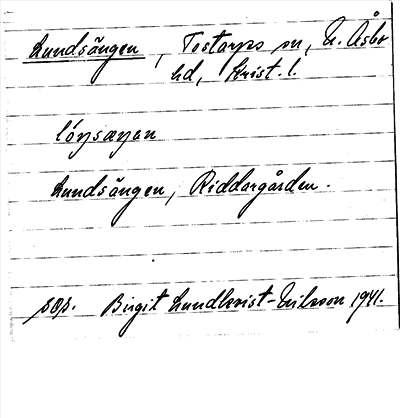 Lundsängen, Tostarps sn, N. Åsbo
hd, Krist. l.
Lundsängen, Riddorgården.
Birgit Lundkvist-Nilsson 1941.